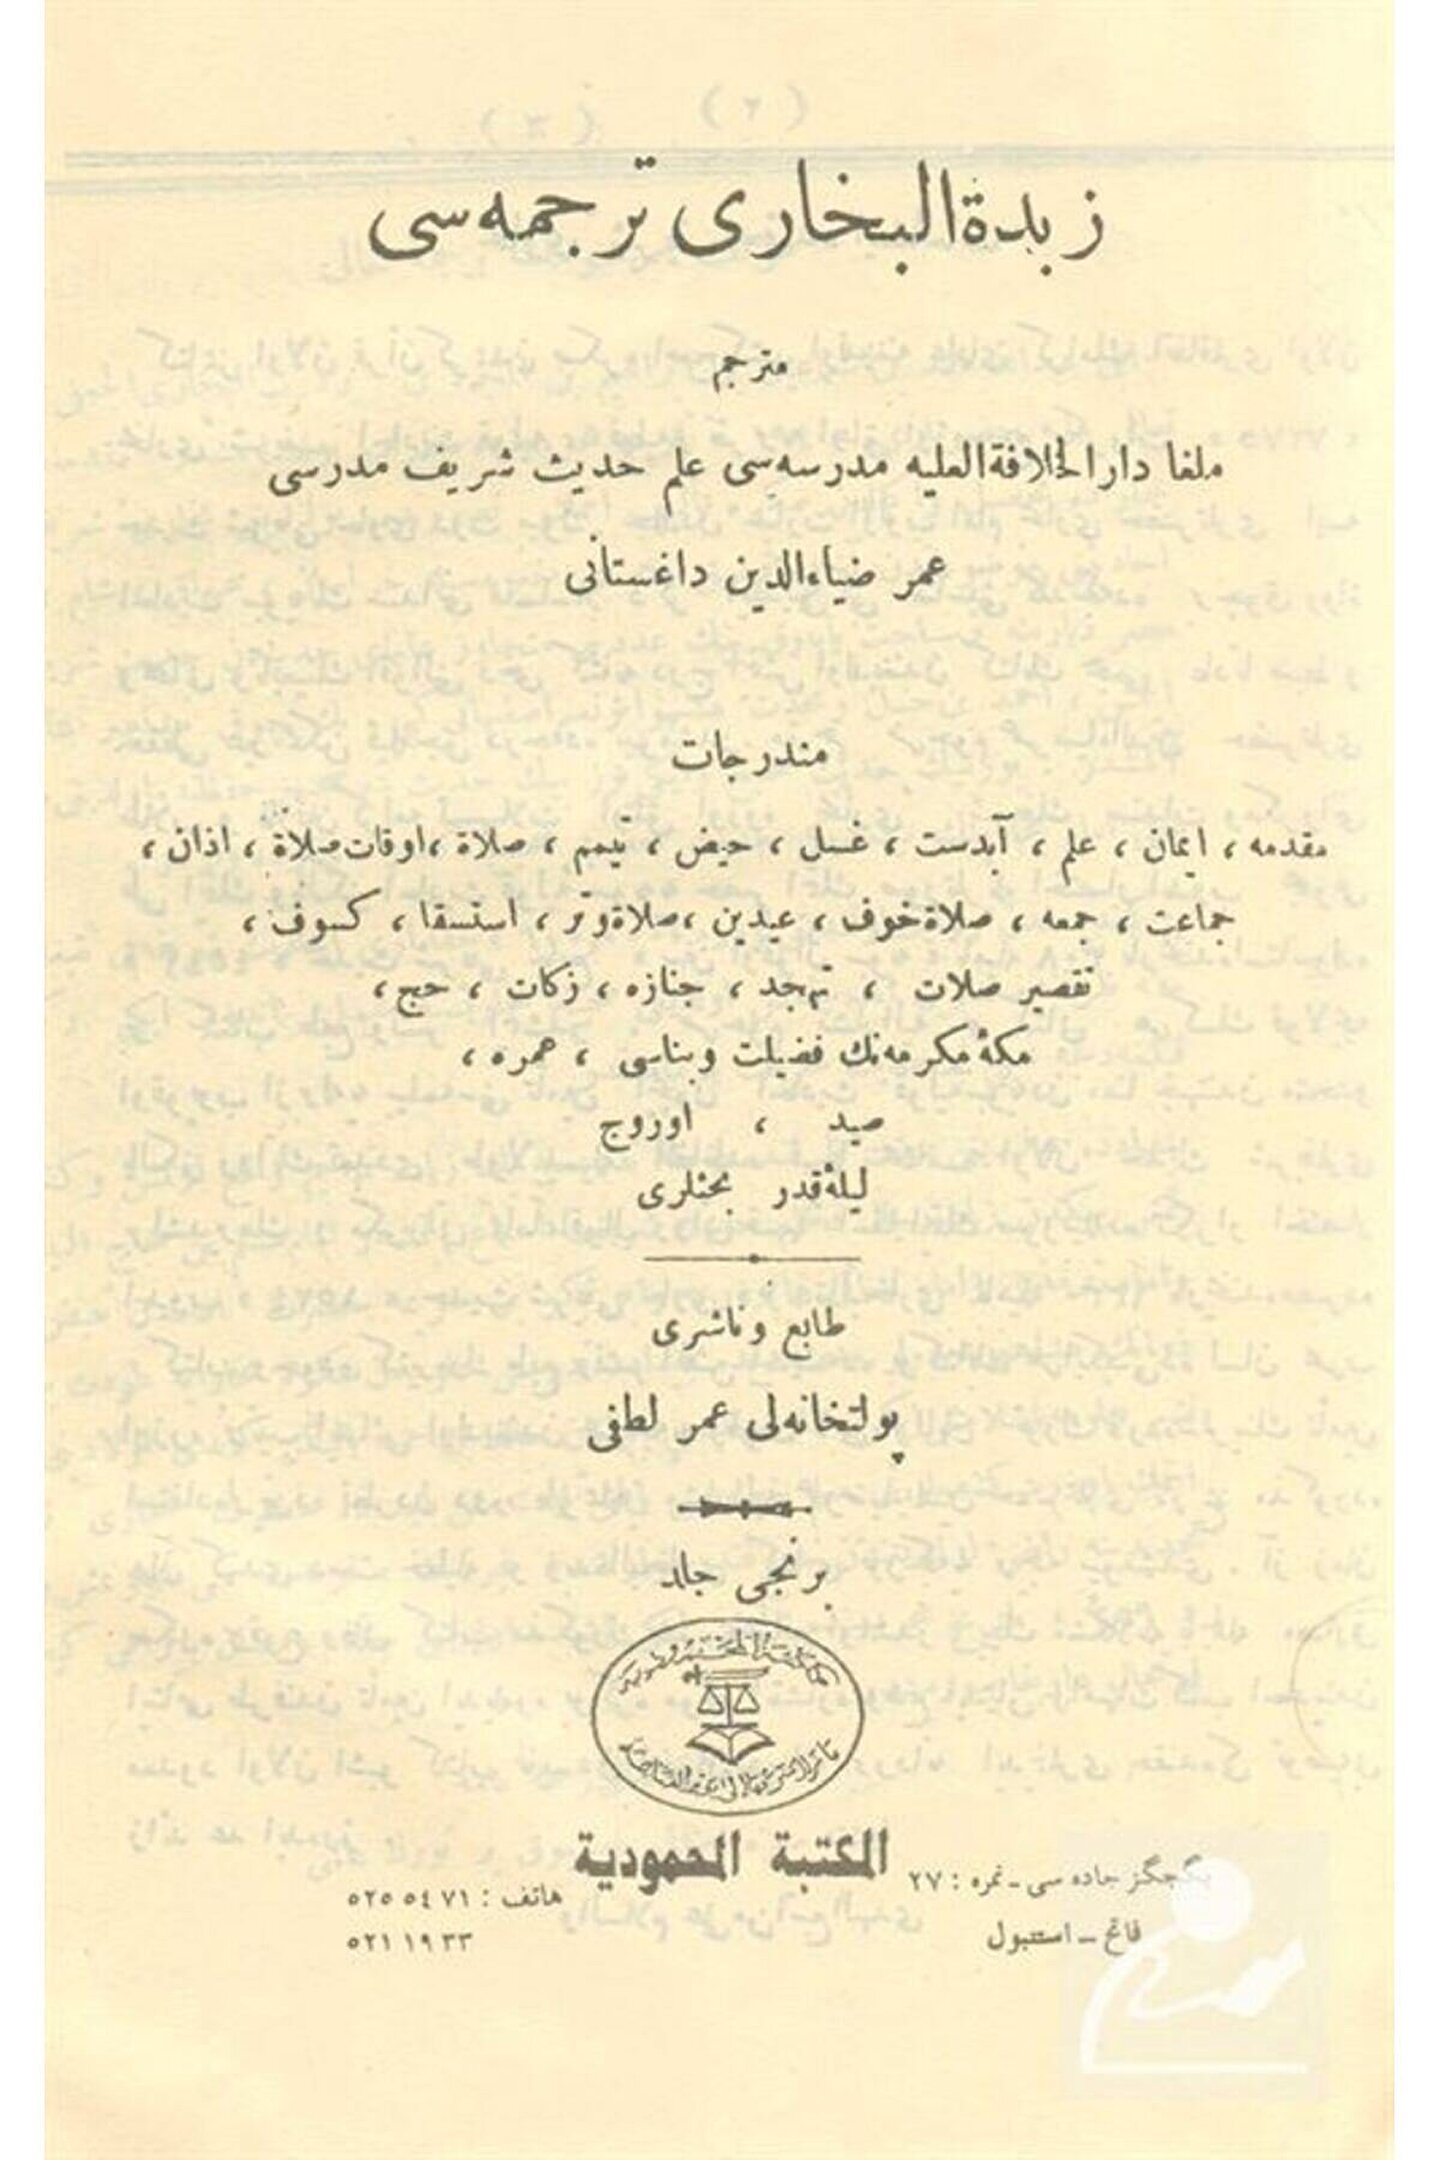 زبدة البخاری ترجمه‌سی
مترجم
ملغا دار الخلافة العلیه مدرسه‌سی علم حدیث شریف مدرسی
عمر ضیاءالدین داغستانی
مندرجات
مقدمه ، ایمان ، علم ، آبدست ، غسل ، حیض ، تیمم ، صلاة ، اوقات صلاة ، اذان ،
جماعت ، جمعه ، صلاة خوف ، عیدین ، صلاة وتر ، استسقا ، کسوف ،
تقصیر صلات ، تهجد ، جنازه ، زکات ، حج ،
مکهٔ مکرمه‌نك فضیلت و بناسی ، عمره ،
صید ، اوروج
لیلهٔ قدر بحثلری
طابع و ناشری
پولتخانه‌لی عمر لطفی
برنجی جلد
المكتبة المحمودية
جاده سی - نمره : ٢٧
هاتف : ٥٢٥ ٥٤ ٧١
فاتح - استنبول
٥٢١ ١٩ ٣٣